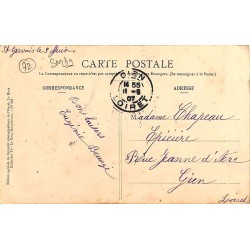 St Gervais le 8 Juin
72
CARTE POSTALE
La Correspondance au recto n'est pas acceptée par tous les Pays Étrangers. (Se renseigner à la Poste.)
CORRESPONDANCE
ADRESSE
GIEN
11-6
07
LOIRET
Bons baisers
Eugénie
Madame Chapeau
Epicière
Rue Jeanne d'Arc
Gien
Loiret